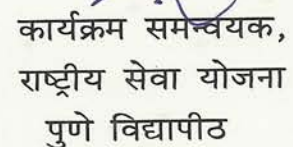 कार्यक्रम समन्वयक,
राष्ट्रीय सेवा योजना
पुणे विद्यापीठ